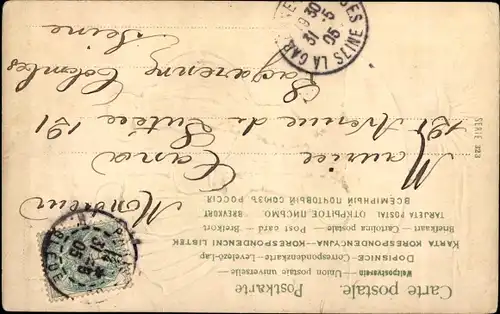 Carte postale.
Postkarte
Weltpostverein — Union postale universelle
DOPISNICE — Correspondenzkarte — Levelező-Lap
KARTA KORESPONDENCYJNA — KORESPONDENCNÍ LÍSTEK
Briefkaart — Cartolina postale — Post card — Brefkort
TARJETA POSTAL — ОТКРЫТОЕ ПИСЬМО. — BREVKORT
ВСЕМИРНЫЙ ПОЧТОВЫЙ СОЮЗЪ РОССІЯ
Monsieur
Maurice
191 Avenue de Lutèce 191
La Garenne Colombes
Seine
SERIE 323
30
5
05
SEINE
LA GAR